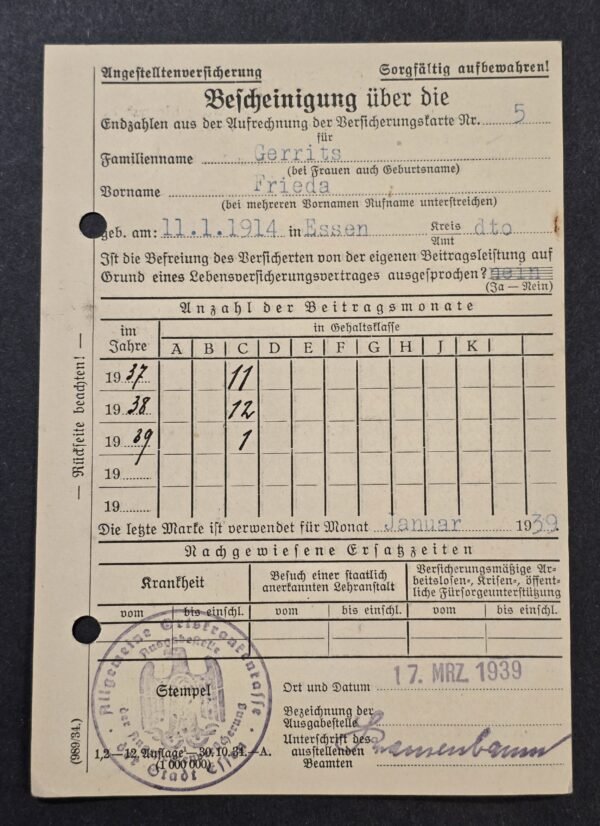 Angestelltenversicherung Sorgfältig aufbewahren!
Bescheinigung über die
Endzahlen aus der Aufrechnung der Versicherungskarte Nr. 5
für
Familienname Gerrits
(bei Frauen auch Geburtsname)
Vorname Frieda
(bei mehreren Vornamen Rufname unterstreichen)
geb. am: 11.1.1914 in Essen Kreis dto
Amt
Ist die Befreiung des Versicherten von der eigenen Beitragsleistung auf
Grund eines Lebensversicherungsvertrages ausgesprochen? nein
(Ja — Nein)
Anzahl der Beitragsmonate
im Jahre in Gehaltsklasse
A B C D E F G H J K
1937 11
1938 12
1939 1
19
19
Die letzte Marke ist verwendet für Monat Januar 1939
Nachgewiesene Ersatzzeiten
Krankheit Besuch einer staatlich anerkannten Lehranstalt Versicherungsmäßige Arbeitslosen-, Krisen-, öffentliche Fürsorgeunterstützung
vom bis einschl. vom bis einschl. vom bis einschl.
Allgemeine Ortskrankenkasse
der Stadt Essen
Ausgabestelle
der Angestelltenversicherung
Stempel
Ort und Datum 17. MRZ. 1939
Bezeichnung der
Ausgabestelle
Unterschrift des
ausstellenden
Beamten
1,2—12. Auflage—30.10.34.—A.
(1 000 000)
— Rückseite beachten! —
(989/34.)